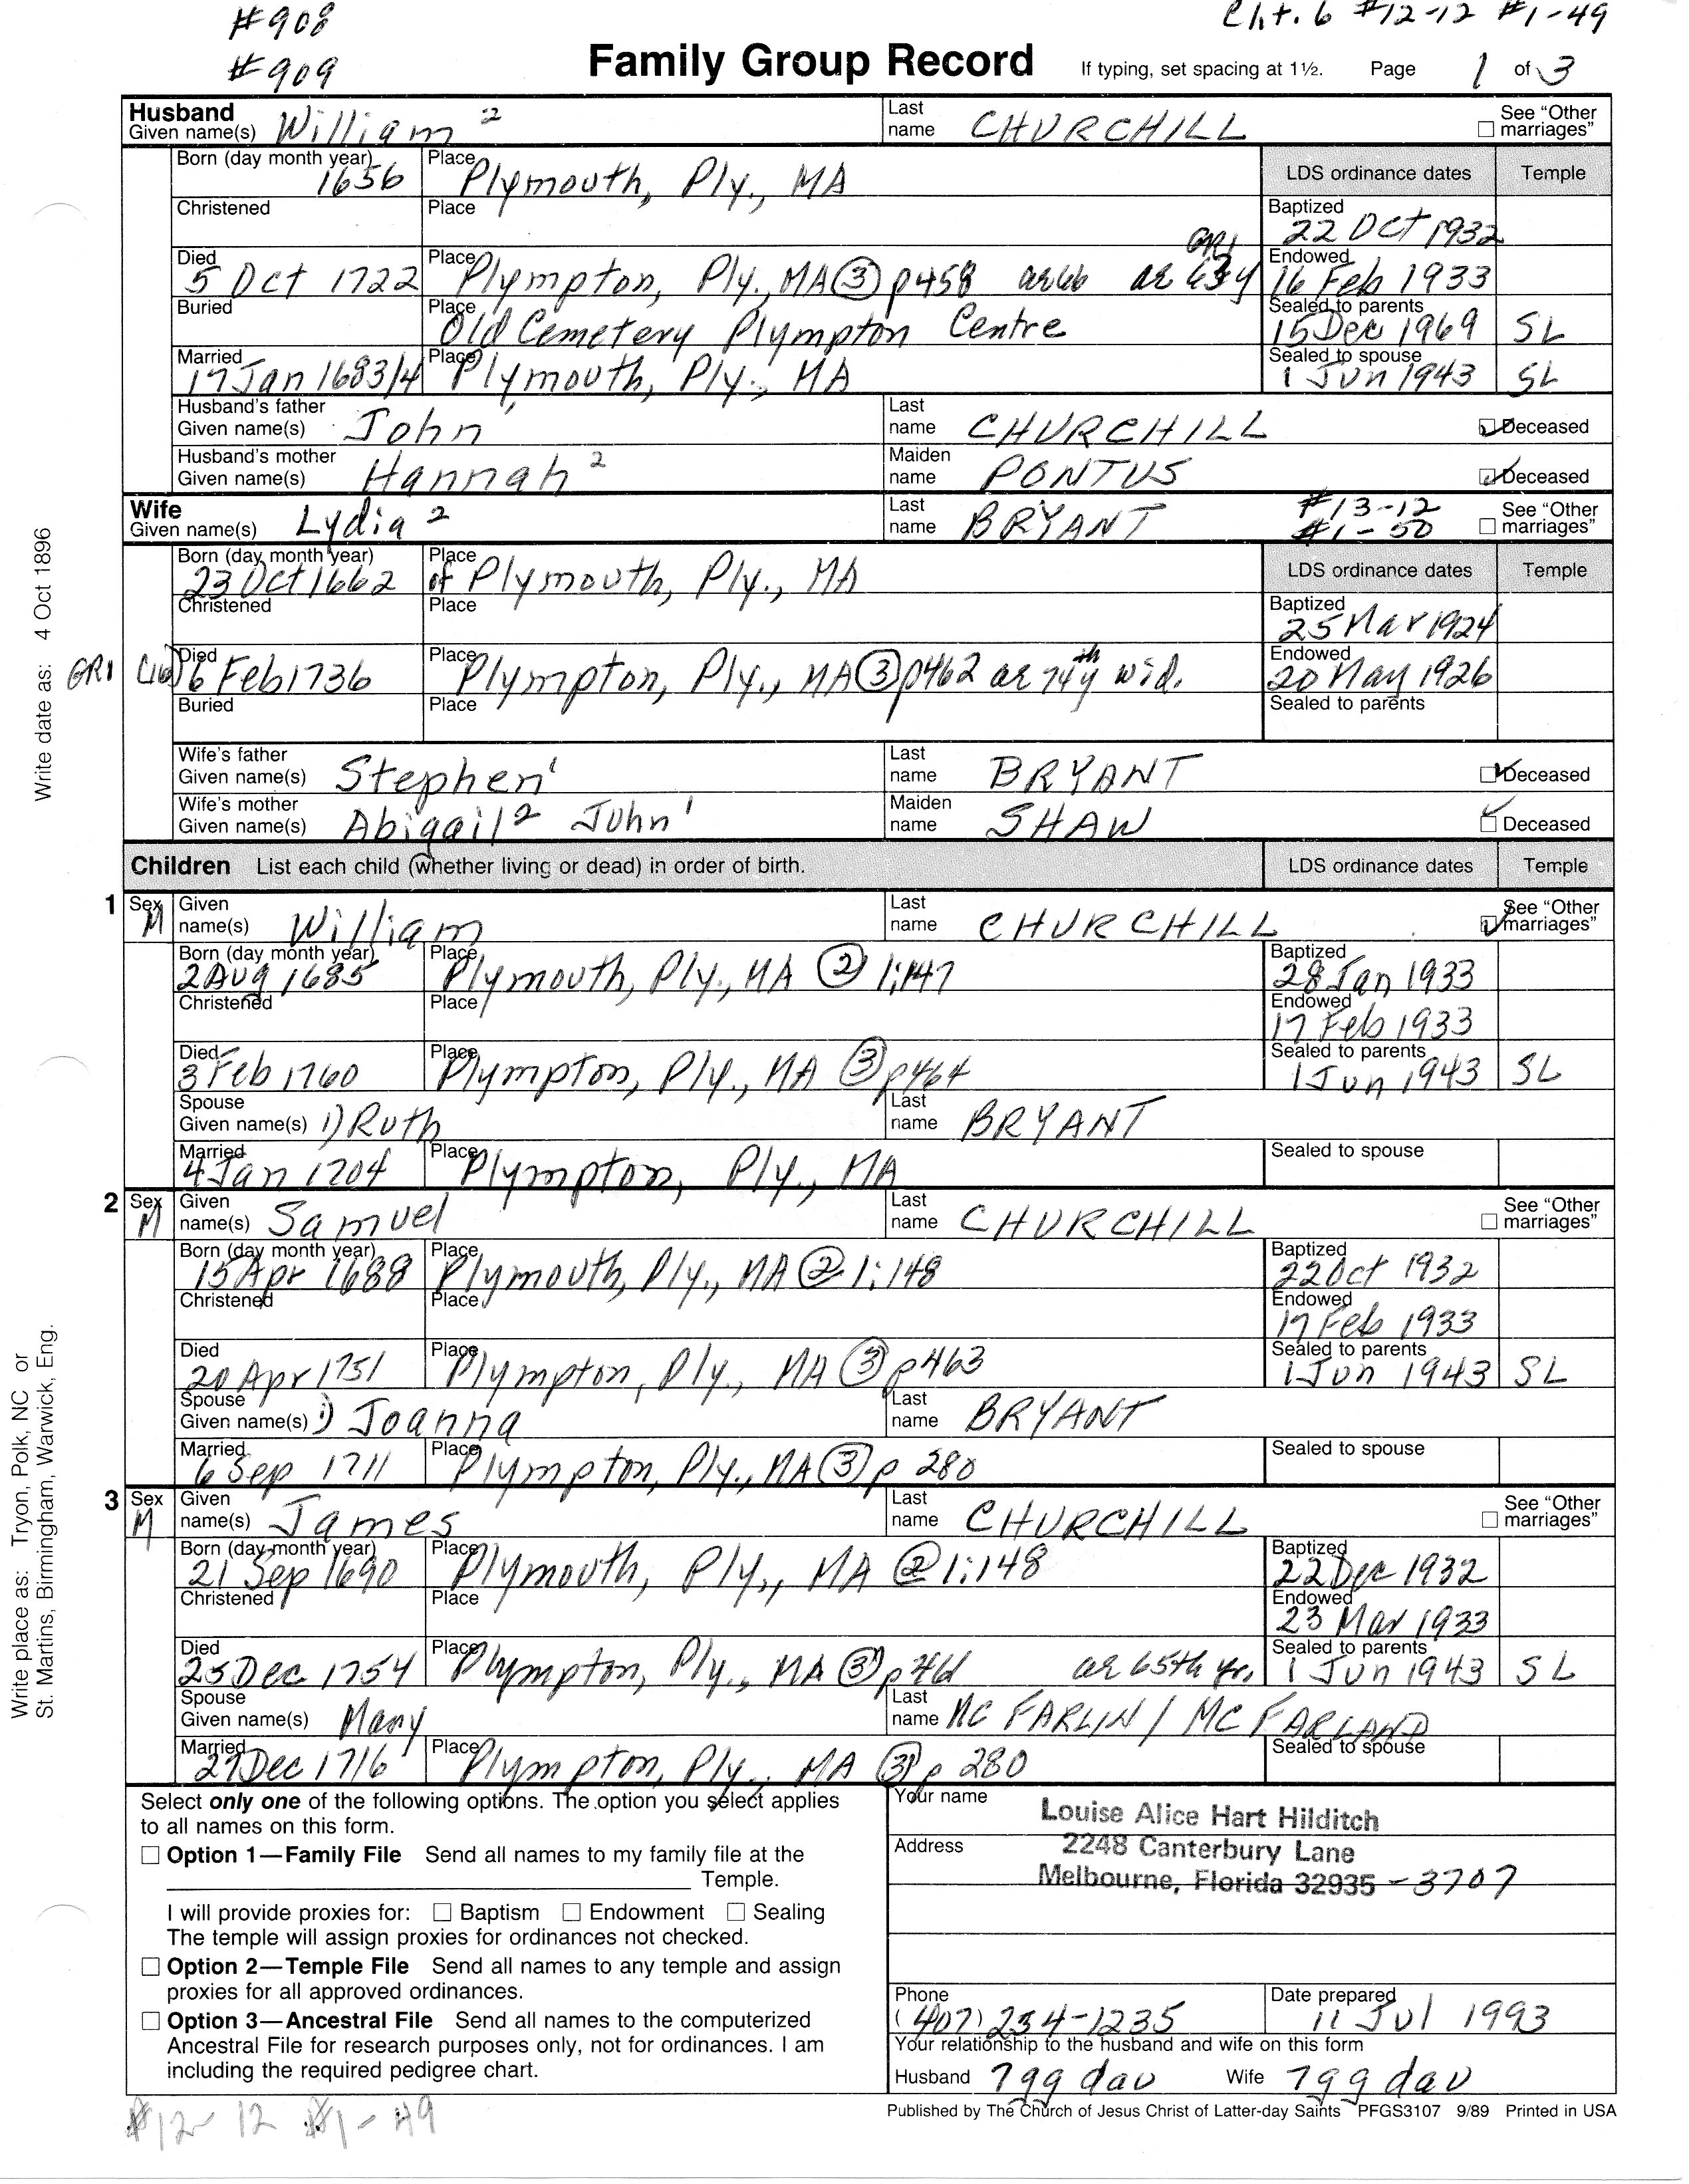 #908
Cht. 6 #12-12 #1-49
#909
Family Group Record
If typing, set spacing at 1½. Page 1 of 3
Husband
Given name(s) William 2
Last name CHURCHILL
See "Other marriages"
Born (day month year) 1656
Place Plymouth, Ply., MA
LDS ordinance dates Temple
Christened
Place
Baptized 22 Oct 1932
Died 5 Oct 1722
Place Plympton, Ply., MA (3) p458 ae 66 ae 63y GR1
Endowed 16 Feb 1933
Buried
Place Old Cemetery Plympton Centre
Sealed to parents 15 Dec 1969 SL
Married 17 Jan 1683/4
Place Plymouth, Ply., MA
Sealed to spouse 1 Jun 1943 SL
Husband's father
Given name(s) John 1
Last name CHURCHILL
Deceased
Husband's mother
Given name(s) Hannah 2
Maiden name PONTUS
Deceased
Wife
Given name(s) Lydia 2
Last name BRYANT
#13-12
#1-50
See "Other marriages"
Born (day month year) 23 Oct 1662
Place of Plymouth, Ply., MA
LDS ordinance dates Temple
Christened
Place
Baptized 25 Mar 1924
GR1 (16) Died 6 Feb 1736
Place Plympton, Ply., MA (3) p462 ae 74th y wid.
Endowed 20 May 1926
Buried
Place
Sealed to parents
Wife's father
Given name(s) Stephen 1
Last name BRYANT
Deceased
Wife's mother
Given name(s) Abigail 2 John 1
Maiden name SHAW
Deceased
Children List each child (whether living or dead) in order of birth.
LDS ordinance dates Temple
1 Sex M
Given name(s) William
Last name CHURCHILL
See "Other marriages"
Born (day month year) 2 Aug 1685
Place Plymouth, Ply., MA (2) 1:147
Baptized 28 Jan 1933
Christened
Place
Endowed 17 Feb 1933
Died 3 Feb 1760
Place Plympton, Ply., MA (3) p464
Sealed to parents 1 Jun 1943 SL
Spouse
Given name(s) 1) Ruth
Last name BRYANT
Married 4 Jan 1704
Place Plympton, Ply., MA
Sealed to spouse
2 Sex M
Given name(s) Samuel
Last name CHURCHILL
See "Other marriages"
Born (day month year) 15 Apr 1688
Place Plymouth, Ply., MA (2) 1:148
Baptized 22 Oct 1932
Christened
Place
Endowed 17 Feb 1933
Died 20 Apr 1751
Place Plympton, Ply., MA (3) p463
Sealed to parents 1 Jun 1943 SL
Spouse
Given name(s) 1) Joanna
Last name BRYANT
Married 6 Sep 1711
Place Plympton, Ply., MA (3) p 280
Sealed to spouse
3 Sex M
Given name(s) James
Last name CHURCHILL
See "Other marriages"
Born (day month year) 21 Sep 1690
Place Plymouth, Ply., MA (2) 1:148
Baptized 22 Dec 1932
Christened
Place
Endowed 23 Mar 1933
Died 25 Dec 1754
Place Plympton, Ply., MA (3) ae 65th yr.
Sealed to parents 1 Jun 1943 SL
Spouse
Given name(s) Mary
Last name MC FARLIN / MC FARLAND
Married 27 Dec 1716
Place Plympton, Ply., MA (3) p 280
Sealed to spouse
Select only one of the following options. The option you select applies
to all names on this form.
Option 1—Family File Send all names to my family file at the
Temple.
I will provide proxies for: Baptism Endowment Sealing
The temple will assign proxies for ordinances not checked.
Option 2—Temple File Send all names to any temple and assign
proxies for all approved ordinances.
Option 3—Ancestral File Send all names to the computerized
Ancestral File for research purposes only, not for ordinances. I am
including the required pedigree chart.
Your name Louise Alice Hart Hilditch
Address 2248 Canterbury Lane
Melbourne, Florida 32935 -3707
Phone (407) 254-1235
Date prepared 11 Jul 1993
Your relationship to the husband and wife on this form
Husband 7gg dau Wife 7gg dau
Published by The Church of Jesus Christ of Latter-day Saints PFGS3107 9/89 Printed in USA
#12-12 #1-49
Write date as: 4 Oct 1896
Write place as: Tryon, Polk, NC or
St. Martins, Birmingham, Warwick, Eng.